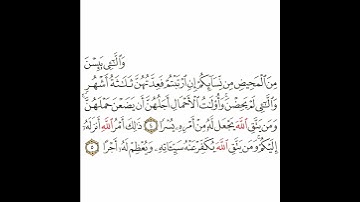 وَالَّٰٓـِٔي يَئِسْنَ
مِنَ الْمَحِيضِ مِن نِّسَآئِكُمْ إِنِ ارْتَبْتُمْ فَعِدَّتُهُنَّ ثَلَٰثَةُ أَشْهُرٍ
وَالَّٰٓـِٔي لَمْ يَحِضْنَ ۚ وَأُو۟لَٰتُ الْأَحْمَالِ أَجَلُهُنَّ أَن يَضَعْنَ حَمْلَهُنَّ ۚ
وَمَن يَتَّقِ اللَّهَ يَجْعَل لَّهُۥ مِنْ أَمْرِهِۦ يُسْرًا ٤ ذَٰلِكَ أَمْرُ اللَّهِ أَنزَلَهُۥٓ
إِلَيْكُمْ ۚ وَمَن يَتَّقِ اللَّهَ يُكَفِّرْ عَنْهُ سَيِّـَٔاتِهِۦ وَيُعْظِمْ لَهُۥٓ أَجْرًا ٥